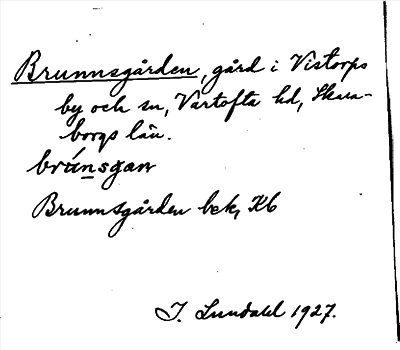 Brunnsgården, gård i Vistorps
by och sn, Vartofta hd, Skara-
borgs län.
brúnsgan
Brunnsgården bek, Kb
I. Lundahl 1927.